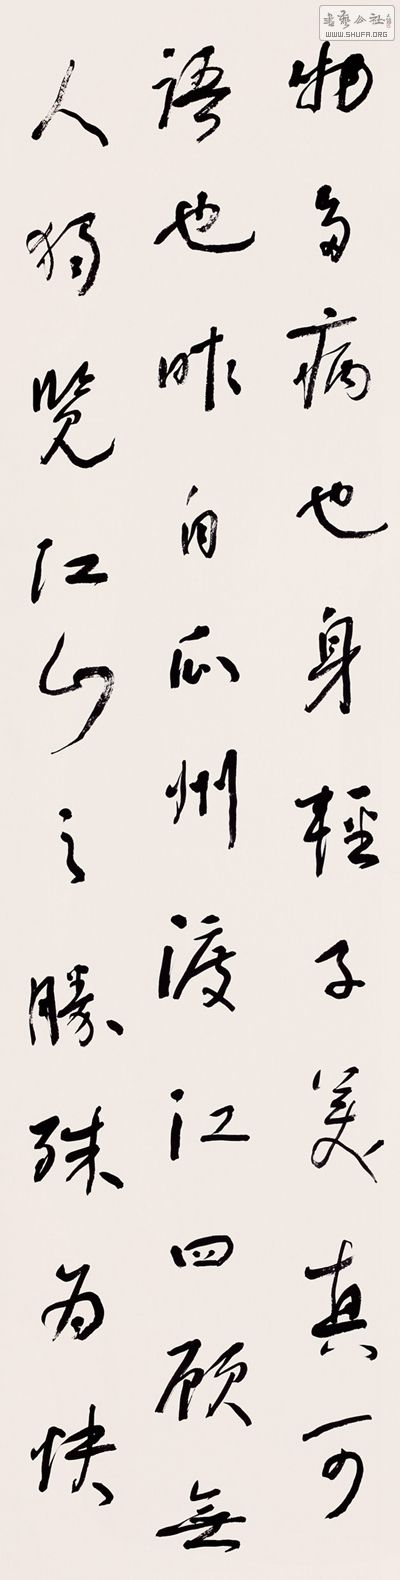 物多病也身輕子美真可
語也昨自瓜州渡江四顾無
人獨覽江山之勝殊为快
書藝公社
WWW.SHUFA.ORG